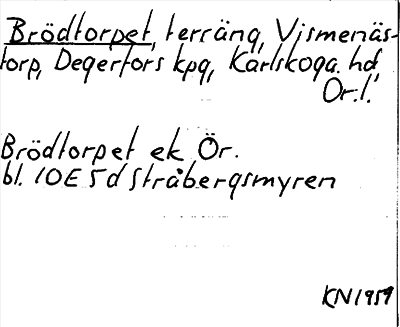 Brödtorpet, terräng, Vismenäs-
torp, Degerfors kpg, Karlskoga hd,
Ör.l.
Brödtorpet ek Ör.
bl. 10E 5d Stråbergsmyren
KN 1959